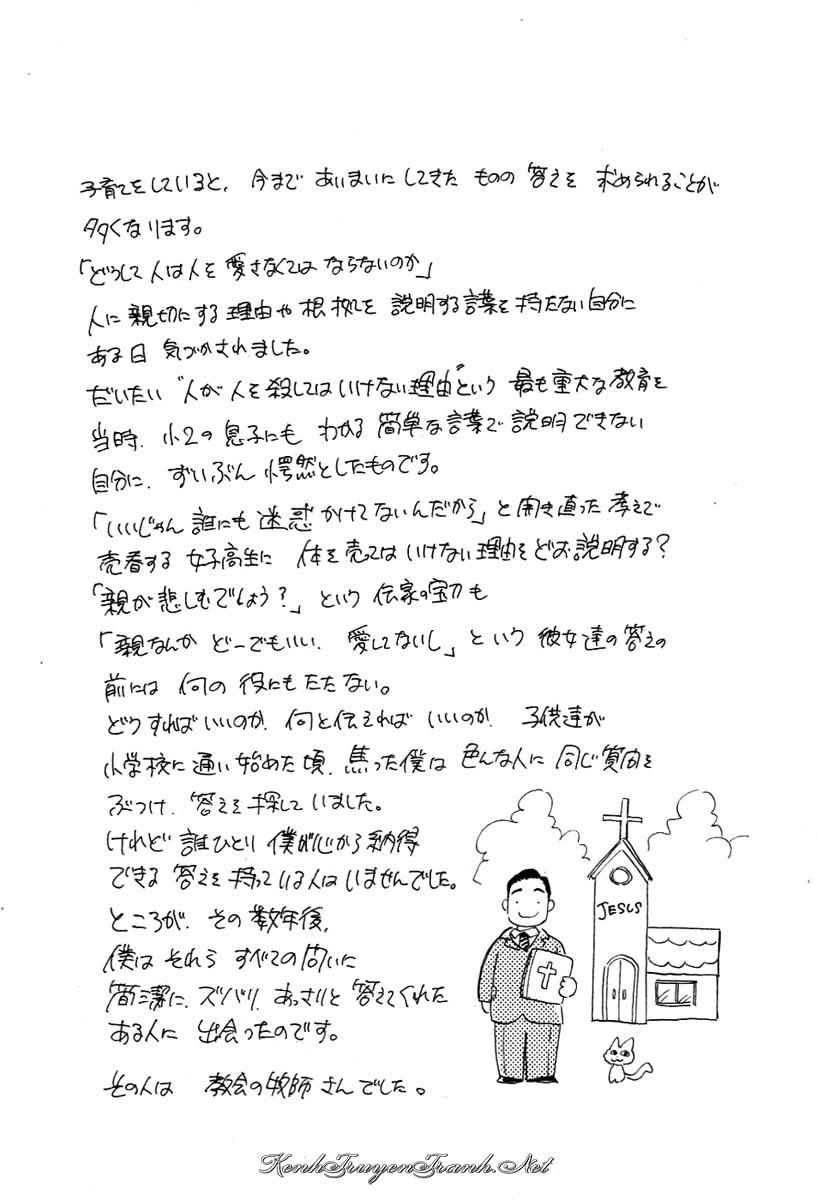 子育てをしていると、今まで あいまいに してきた ものの 答えを 求められることが
多くなります。
「どうして 人は人を 愛さなくては ならないのか」
人に 親切にする 理由や 根拠を 説明する言葉を 持たない自分に
ある日 気づかされました。
だいたい "人が 人を 殺しては いけない理由" という 最も 重大な 教育を
当時、小2の 息子にも わかる 簡単な 言葉で 説明 できない
自分に、ずいぶん 愕然としたものです。
「いいじゃん 誰にも 迷惑 かけてないんだから」と 開き直った 考えで
売春する 女子高生に 体を 売っては いけない 理由を どお 説明する?
「親が 悲しむでしょう?」 という 伝家の宝刀も
「親なんか どーでもいい、愛してないし」 という 彼女達の 答えの
前には 何の 役にも たたない。
どうすれば いいのか、何と 伝えれば いいのか、子供達が
小学校に 通い 始めた 頃、焦った 僕は 色んな人に 同じ 質問を
ぶつけ、答えを 探して いました。
けれど 誰ひとり 僕が 心から 納得
できる 答えを 持っている人は いませんでした。
ところが、その 数年後、
僕は それら すべての 問いに
簡潔に、ズバリ、あっさりと 答えてくれた
ある人に 出会ったのです。
その人は 教会の 牧師 さんでした。
JESUS
KenhTruyenTranh.Net